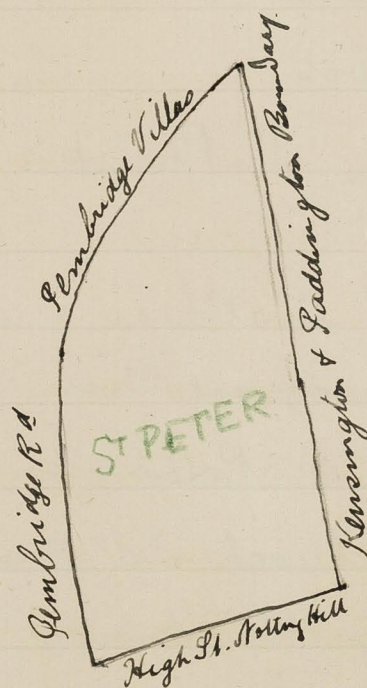 Pembridge Villas
Kensington & Paddington Boundary.
St PETER
Pembridge Rd
High St. Notting Hill